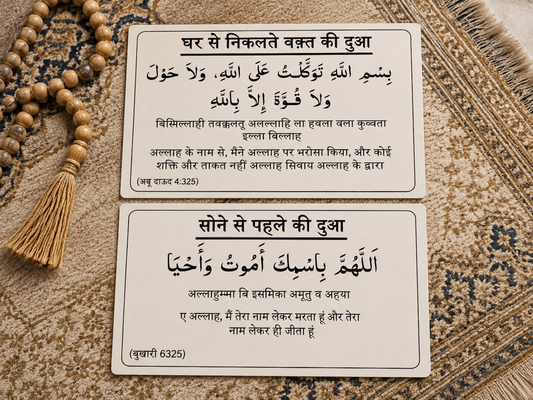 घर से निकलते वक़्त की दुआ
بِسْمِ اللَّهِ تَوَكَّلْتُ عَلَى اللَّهِ، وَلاَ حَوْلَ
وَلاَ قُوَّةَ إِلاَّ بِاللَّهِ
बिस्मिल्लाही तवक्कलतू अलल्लाहि ला हवला वला कुव्वता
इल्ला बिल्लाह
अल्लाह के नाम से, मैंने अल्लाह पर भरोसा किया, और कोई
शक्ति और ताकत नहीं अल्लाह सिवाय अल्लाह के द्वारा
(अबू दाऊद 4:325)
सोने से पहले की दुआ
اَللَّهُمَّ بِاسْمِكَ أَمُوتُ وَأَحْيَا
अल्लाहुम्मा बि इसमिका अमूतु व अहया
ए अल्लाह, मैं तेरा नाम लेकर मरता हूं और तेरा
नाम लेकर ही जीता हूं
(बुखारी 6325)